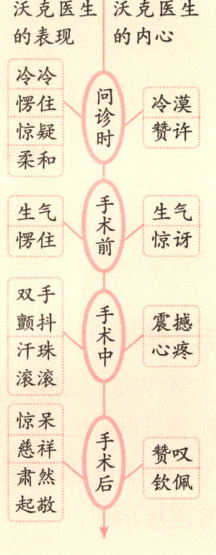 沃克医生
的表现
沃克医生
的内心
冷冷
愣住
惊疑
柔和
问诊时
冷漠
赞许
生气
愣住
手术前
生气
惊讶
双手
颤抖
汗珠
滚滚
手术中
震撼
心疼
惊呆
慈祥
肃然
起敬
手术后
赞叹
钦佩